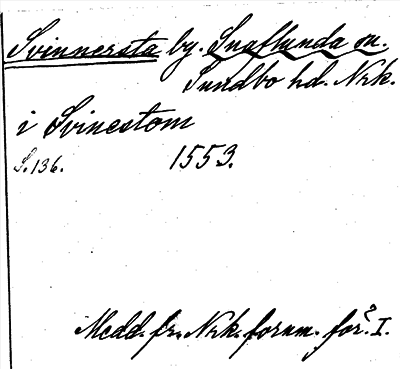 Svinnersta by. Snaflunda sn.
Sundbo hd. Nrk.
i Svinestom
S. 136. 1553.
Medd. fr. Nrk. fornm. för. I.